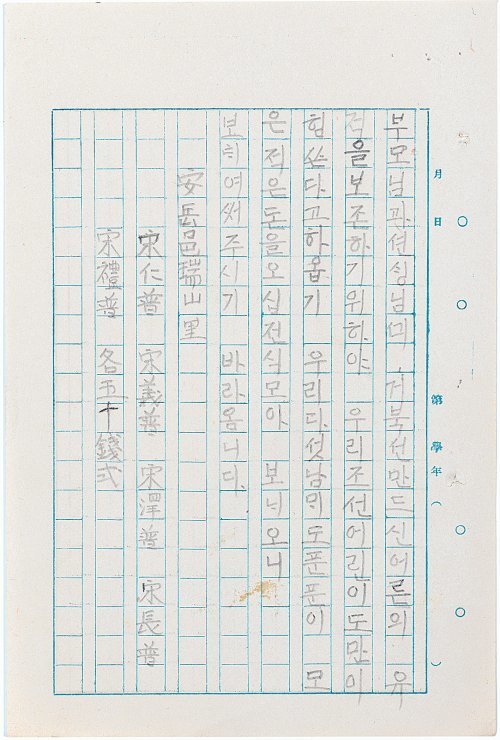 月 日 第 學年 ( )
부모님과션싱님끠 거북선만드신어른의 유
적을보존하기위하야 우리조선어린이도만이
힘쓴다고하옵기 우리다섯남믜도푼푼이 모
은적은돈을오십전식모아 보늬오니
보틔여써주시기 바라옴니다.
安岳邑瑞山里
宋仁普 宋義普 宋澤普 宋長普
宋禮普 各五十錢式